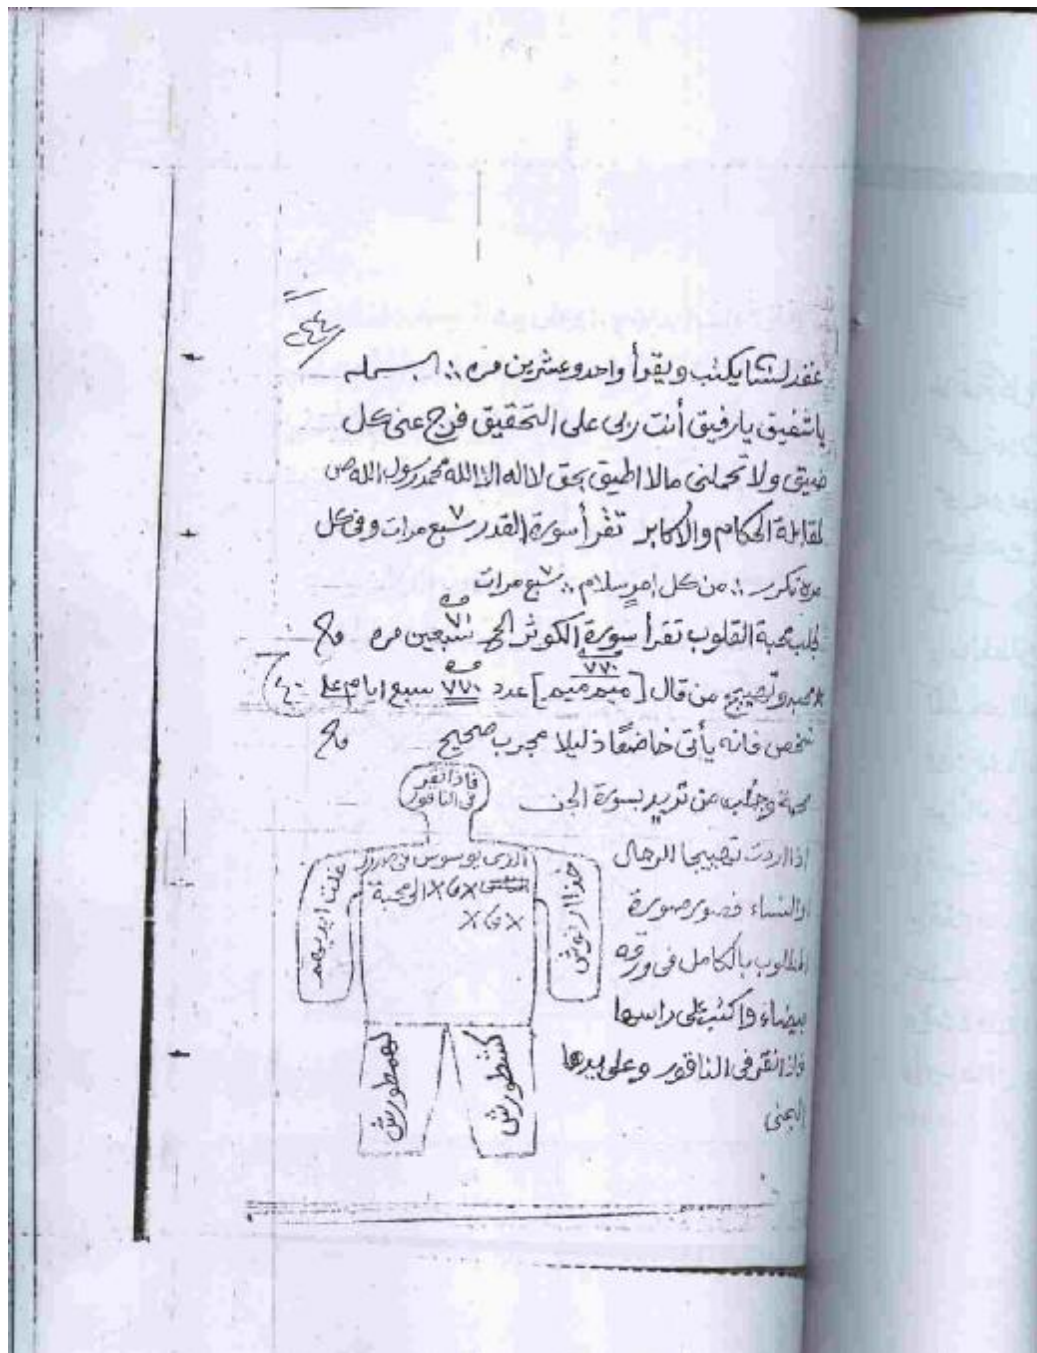 ٢٤٤
يكتب ويقرأ واحد وعشرين مره ؛ البسمله
ياشفيق يارفيق أنت ربى على التحقيق فرج عنى كل
ضيق ولا تحملنى مالا اطيق بحق لااله الا الله محمد رسول الله ص
لمقابلة الحكام والاكابر تقرأ سورة القدر سبع ٧ مرات وفى كل
مرة تكرر ؛ من كل امرٍ سلام ؛ سبع مرات
لجلب محبة القلوب تقرأ سورة الكوثر سبعين مره
٧٠ مره
من قال [ميم ميم] عدد ٧٧٠ مره سبع ايام على
٧٧٠
شخص فانه يأتى خاضعًا ذليلا مجرب صحيح
محبة وجلب من تريد بسورة الجن
اذا اردت تهييجا للرجال
والنساء فصور صورة
المطلوب بالكامل فى ورقه
بيضاء واكتب على راسها
فاذا نقر فى الناقور وعلى يدها
اليمنى
فاذا نقر
فى الناقور
الذى يوسوس فى صدور
الى محبة
غلت ايديهم
كشطورش